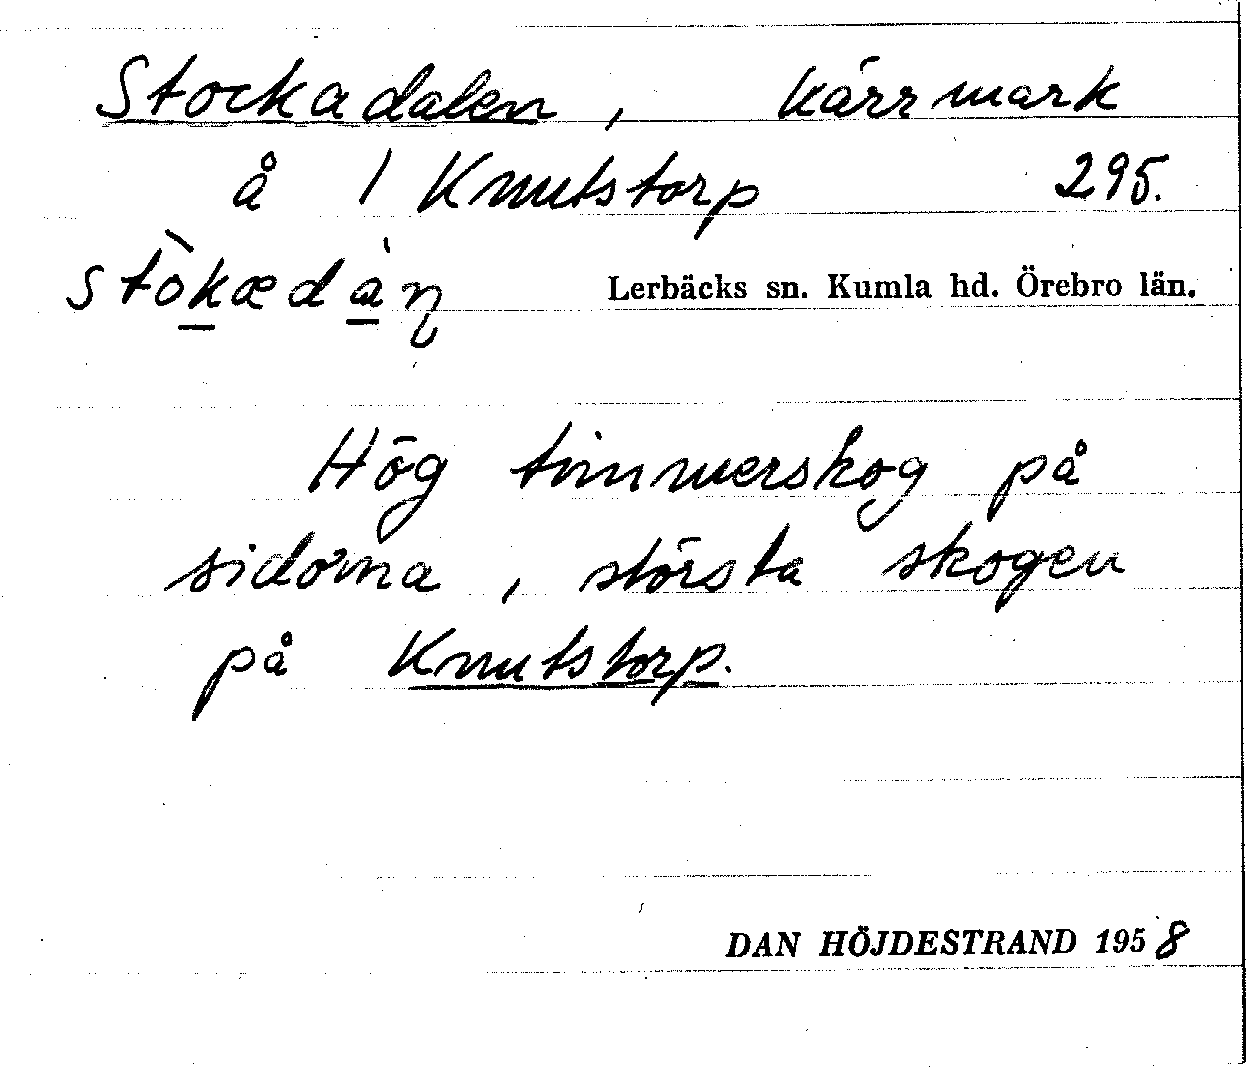 Stockadalen, kärrmark
å 1 Knutstorp 295.
stòkædàɳ Lerbäcks sn. Kumla hd. Örebro län.
Hög timmerskog på
sidorna, största skogen
på Knutstorp.
DAN HÖJDESTRAND 1958